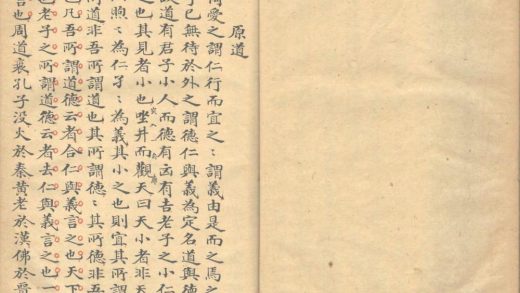 原道
愛之謂仁行而宜之〻謂義由是而之焉之
乎己無待於外之謂德仁與義為定名道與德
故道有君子小人而德有凶有吉老子之小仁
之也其見者小也坐井而觀天曰天小者非天
煦〻為仁孑〻為義其小之也則宜其所謂
所道非吾所謂道也其所謂德〻其所德非吾
也凡吾所謂道德云者合仁與義言之也天下
也老子之所謂道德云者去仁與義言之也一
言也周道衰孔子没火於秦黄老於漢佛於晉